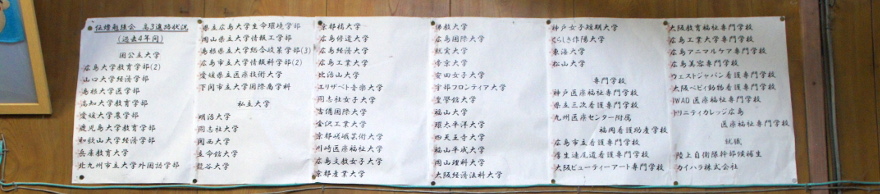 伝増勉強会 高3進路状況
(過去4年間)
国公立大学
広島大学教育学部(2)
山口大学経済学部
島根大学医学部
高知大学教育学部
愛媛大学農学部
鹿児島大学教育学部
和歌山大学経済学部
兵庫教育大学
北九州市立大学外国語学部
県立広島大学生命環境学部
岡山県立大学情報工学部
島根県立大学総合政策学部(3)
広島市立大学情報科学部(2)
愛媛県立医療技術大学
下関市立大学国際商学科
私立大学
明治大学
同志社大学
関西大学
立命館大学
龍谷大学
京都橘大学
広島修道大学
広島経済大学
広島工業大学
比治山大学
エリザベト音楽大学
同志社女子大学
吉備国際大学
金沢工業大学
京都嵯峨芸術大学
川崎医療福祉大学
広島文教女子大学
京都産業大学
佛教大学
広島国際大学
就実大学
帝京大学
安田女子大学
宇部フロンティア大学
皇學館大学
福山大学
環太平洋大学
四天王寺大学
福山平成大学
岡山理科大学
大阪経済法科大学
神戸女子短期大学
くらしき作陽大学
東海大学
松山大学
専門学校
神戸医療福祉専門学校
県立三次看護専門学校
九州医療センター附属
福岡看護助産学校
広島市立看護専門学校
厚生連尾道看護専門学校
大阪ビューティーアート専門学校
大阪教育福祉専門学校
広島工業大学専門学校
広島アニマルケア専門学校
広島美容専門学校
ウェストジャパン看護専門学校
大阪ペピィ動物看護専門学校
IWAD医療福祉専門学校
トリニティカレッジ広島
医療福祉専門学校
就職
陸上自衛隊幹部候補生
カイハラ株式会社